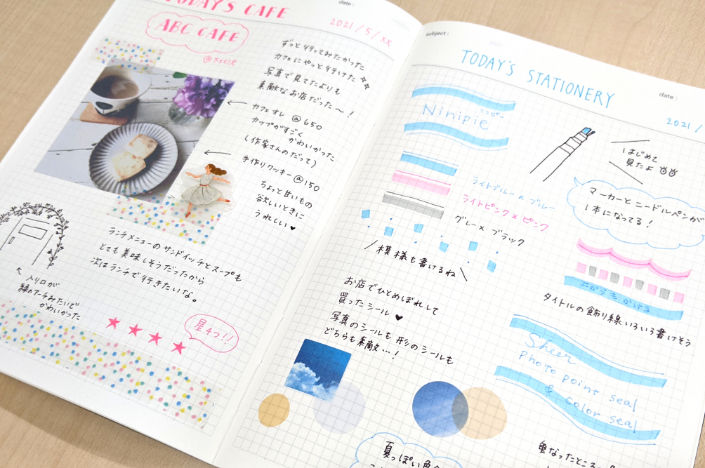 TODAY'S CAFE
date :
2021/5/XX
ABC CAFE
ずっと行ってみたかった
カフェにやっと行けた
写真で見てたよりも
素敵なお店だった〜!
カフェオレ @650
カップがすごく
かわいかった
(作家さんのだって)
手作りクッキー @150
ちょっと甘いもの
欲しいときに
うれしい♥
ランチメニューのサンドイッチとスープも
とても美味しそうだったから
次はランチで行きたいな。
入り口が
緑のアーチみたいで
かわいかった
★★★★
星4つ!!
subject :
date :
TODAY'S STATIONERY
2021/
Ninipie
はじめて
見たよ
マーカーとニードルペンが
1本になってる!
ライトブルー×ブルー
ライトピンク×ピンク
グレー×ブラック
模様も書けるね
タイトルの飾り線いろいろ書けそう
お店でひとめぼれして
買ったシール♥
写真のシールも 形のシールも
どちらも素敵…!
Sheer
Photo point seal
& color seal
夏っぽい色